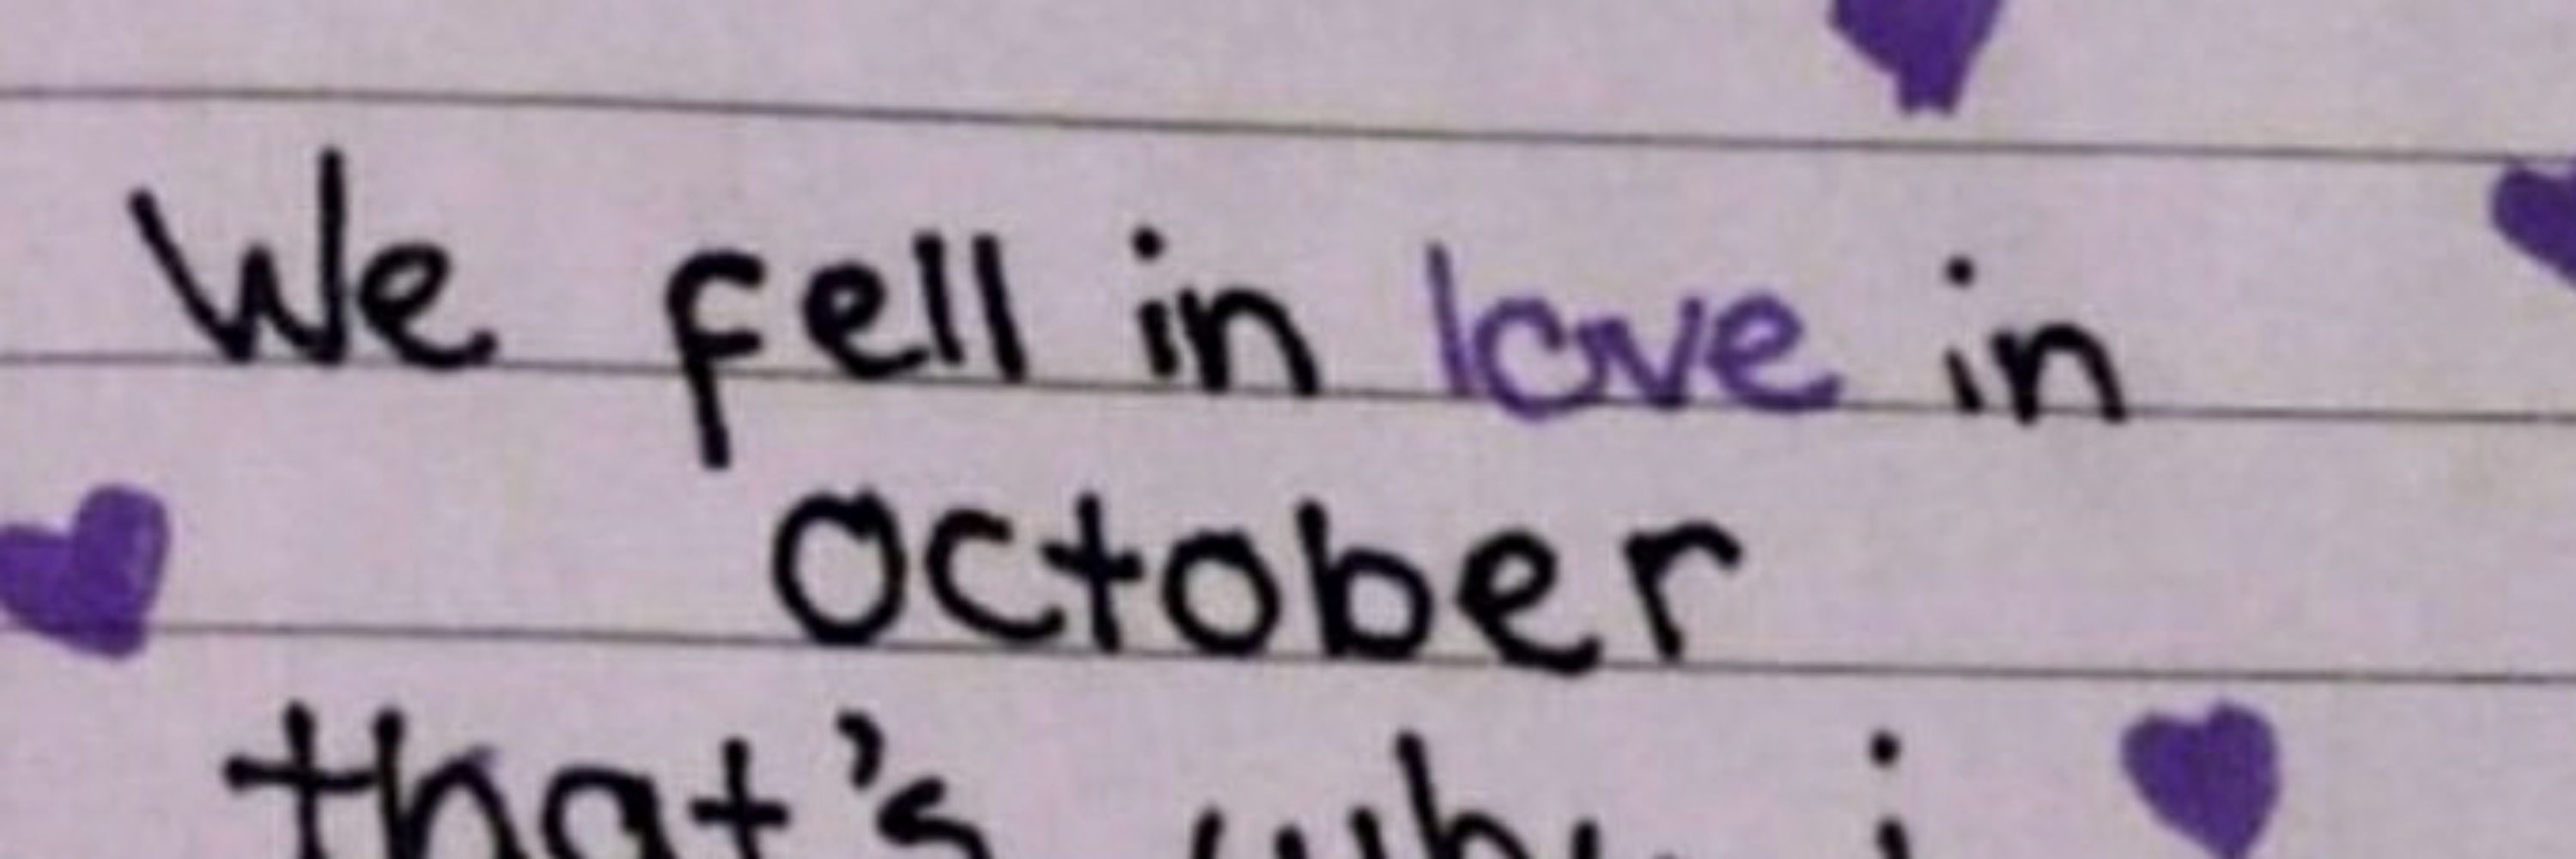 We fell in love in
october
that's why i